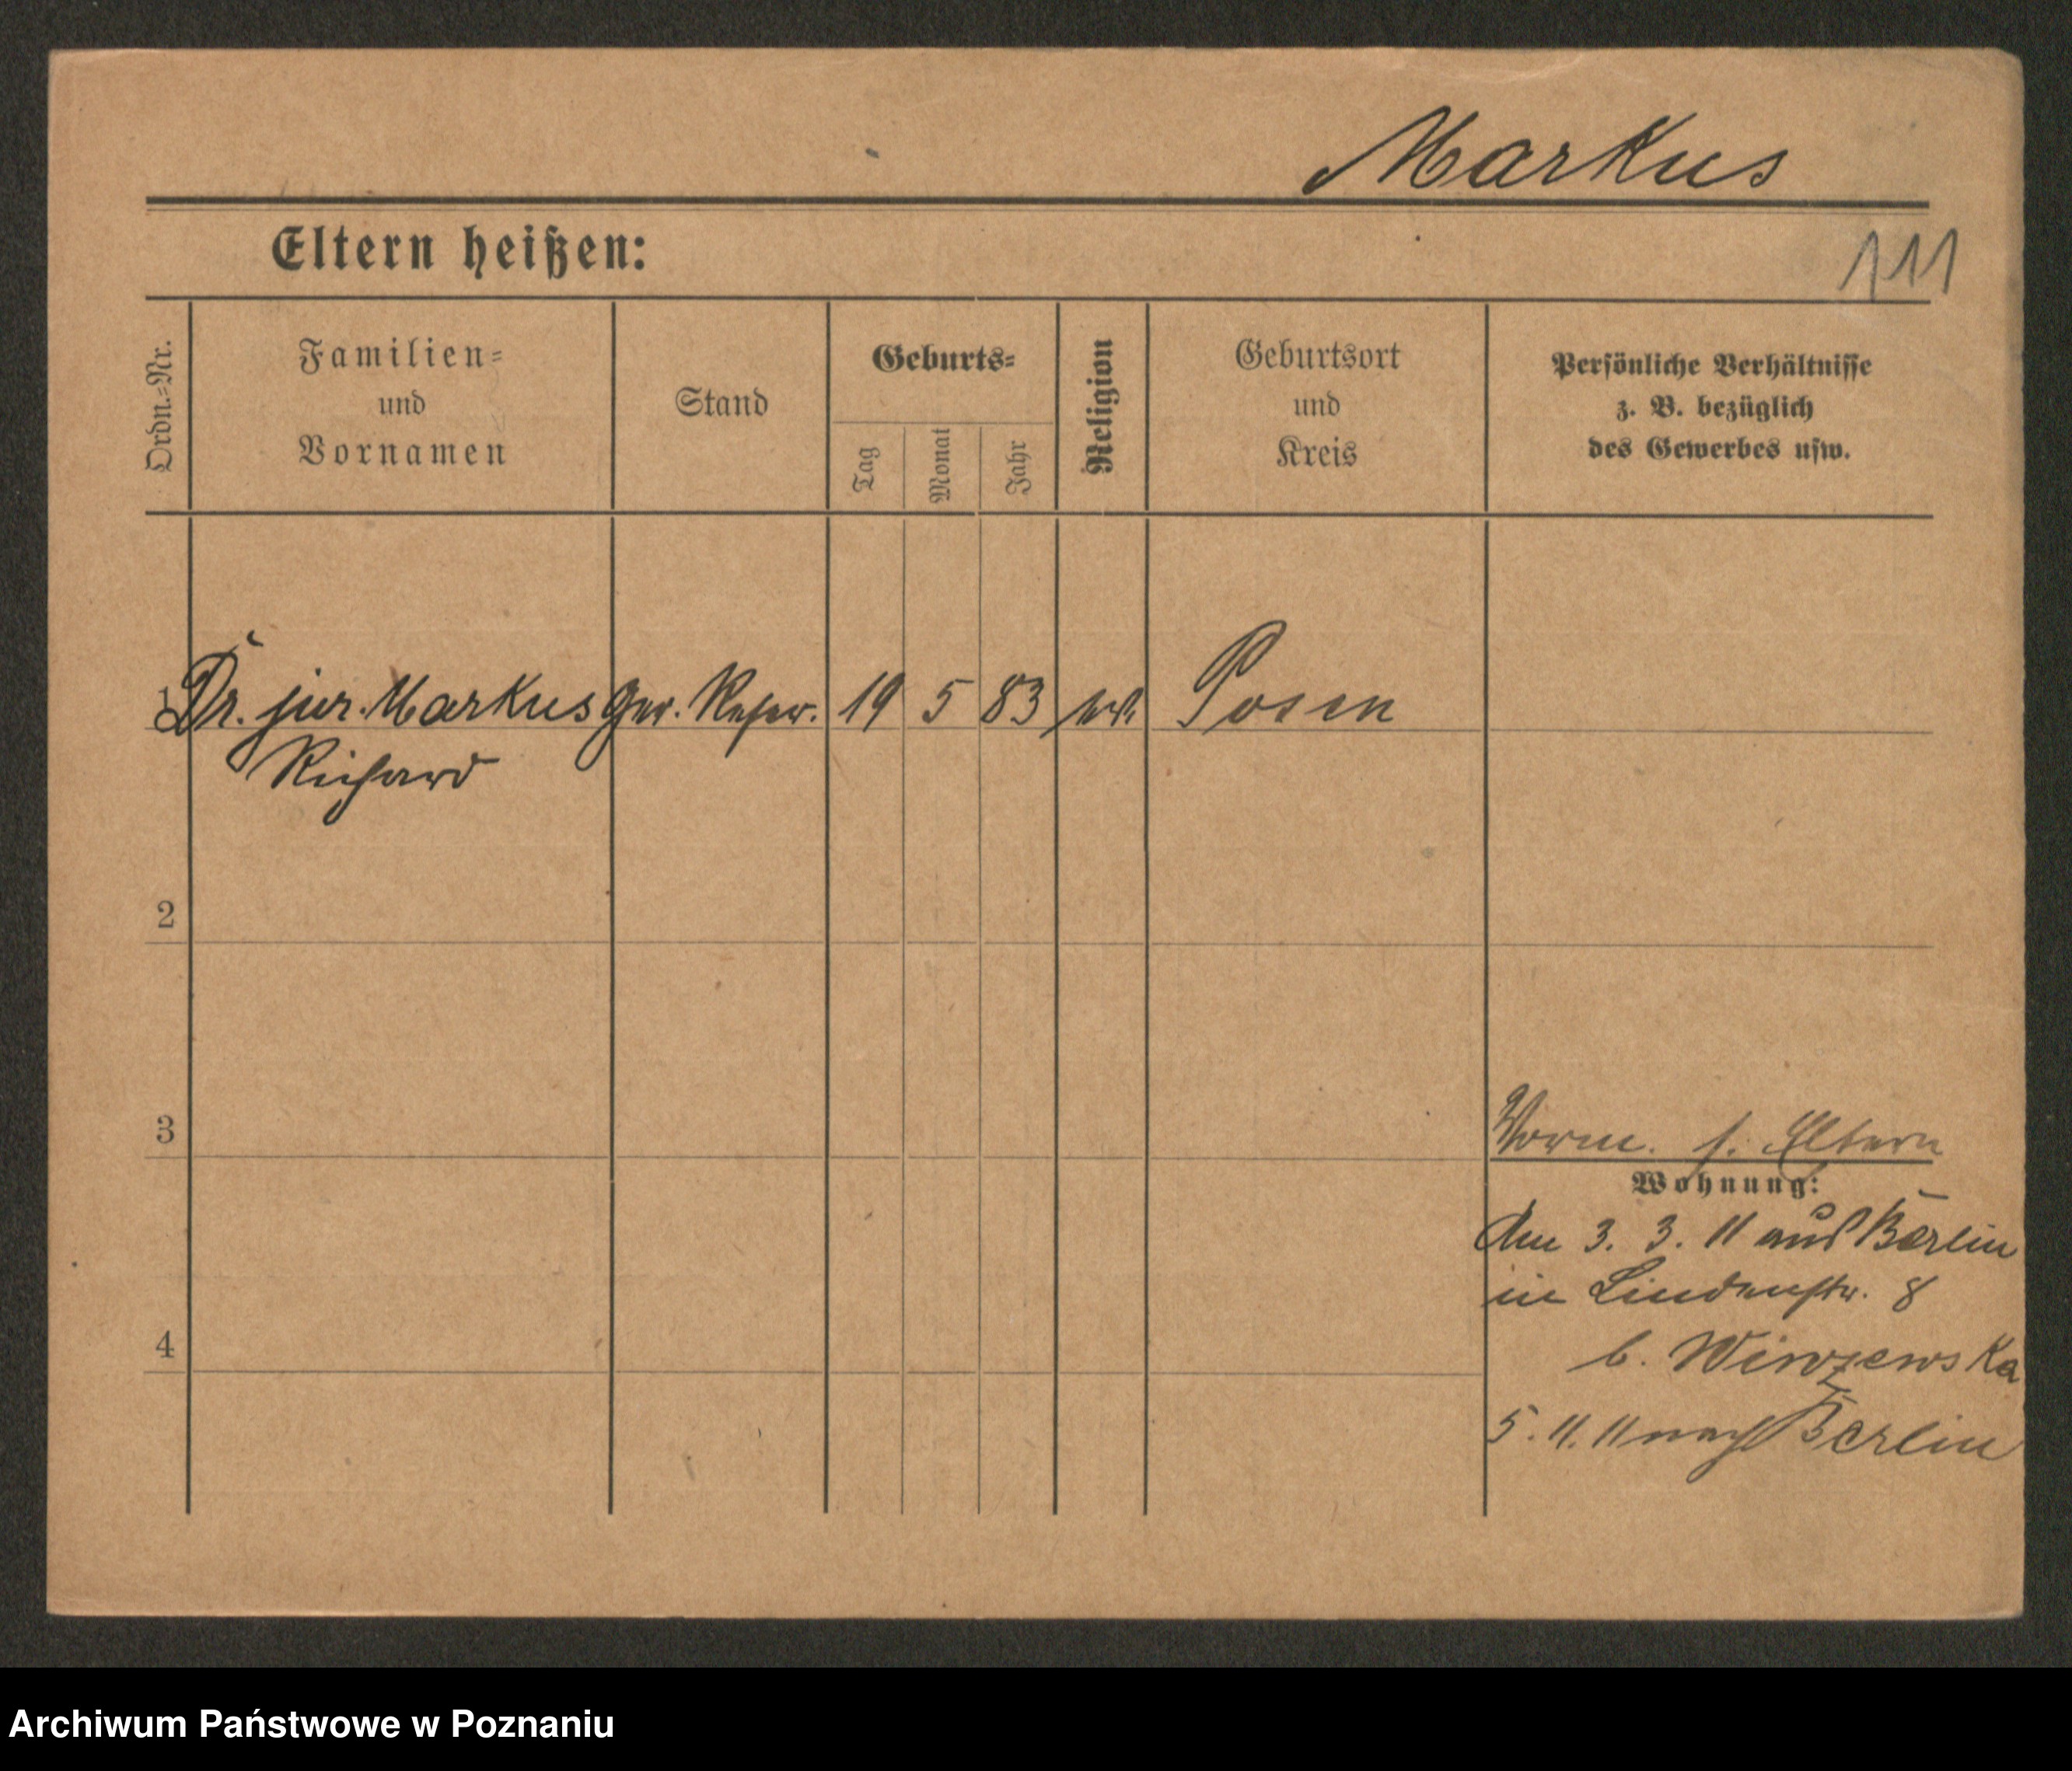 Markus
Eltern heißen:
111
Ordn.=Nr.
Familien=
und
Vornamen
Stand
Geburts=
Tag
Monat
Jahr
Religion
Geburtsort
und
Kreis
Persönliche Verhältnisse
z. B. bezüglich
des Gewerbes usw.
1 Dr. jur. Markus Ger. Refer. 19 5 83 Posen
Richard
2
3
Vorm. s. Eltern
Wohnung:
Am 3. 3. 11 aus Berlin
in Lindenstr. 8
4
b.
5. 11. 11 nach Berlin
Archiwum Państwowe w Poznaniu